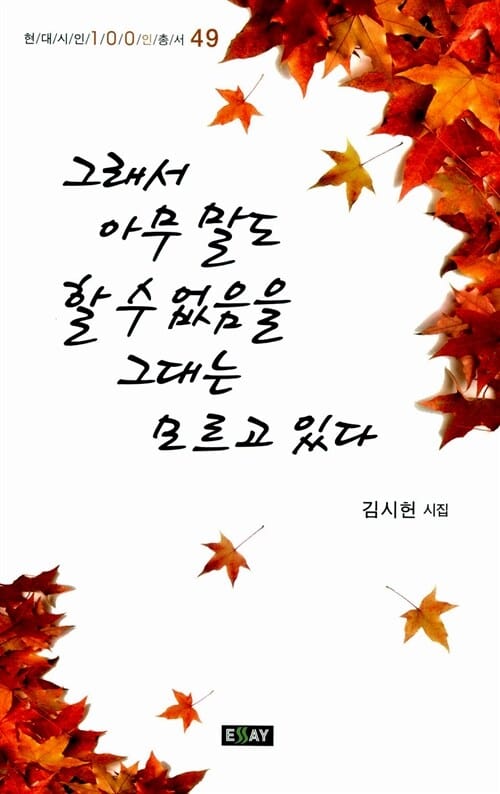 현/대/시/인/100/인/총/서 49
그래서
아무 말도
할 수 없음을
그대는
모르고 있다
김시헌 시집
ESSAY